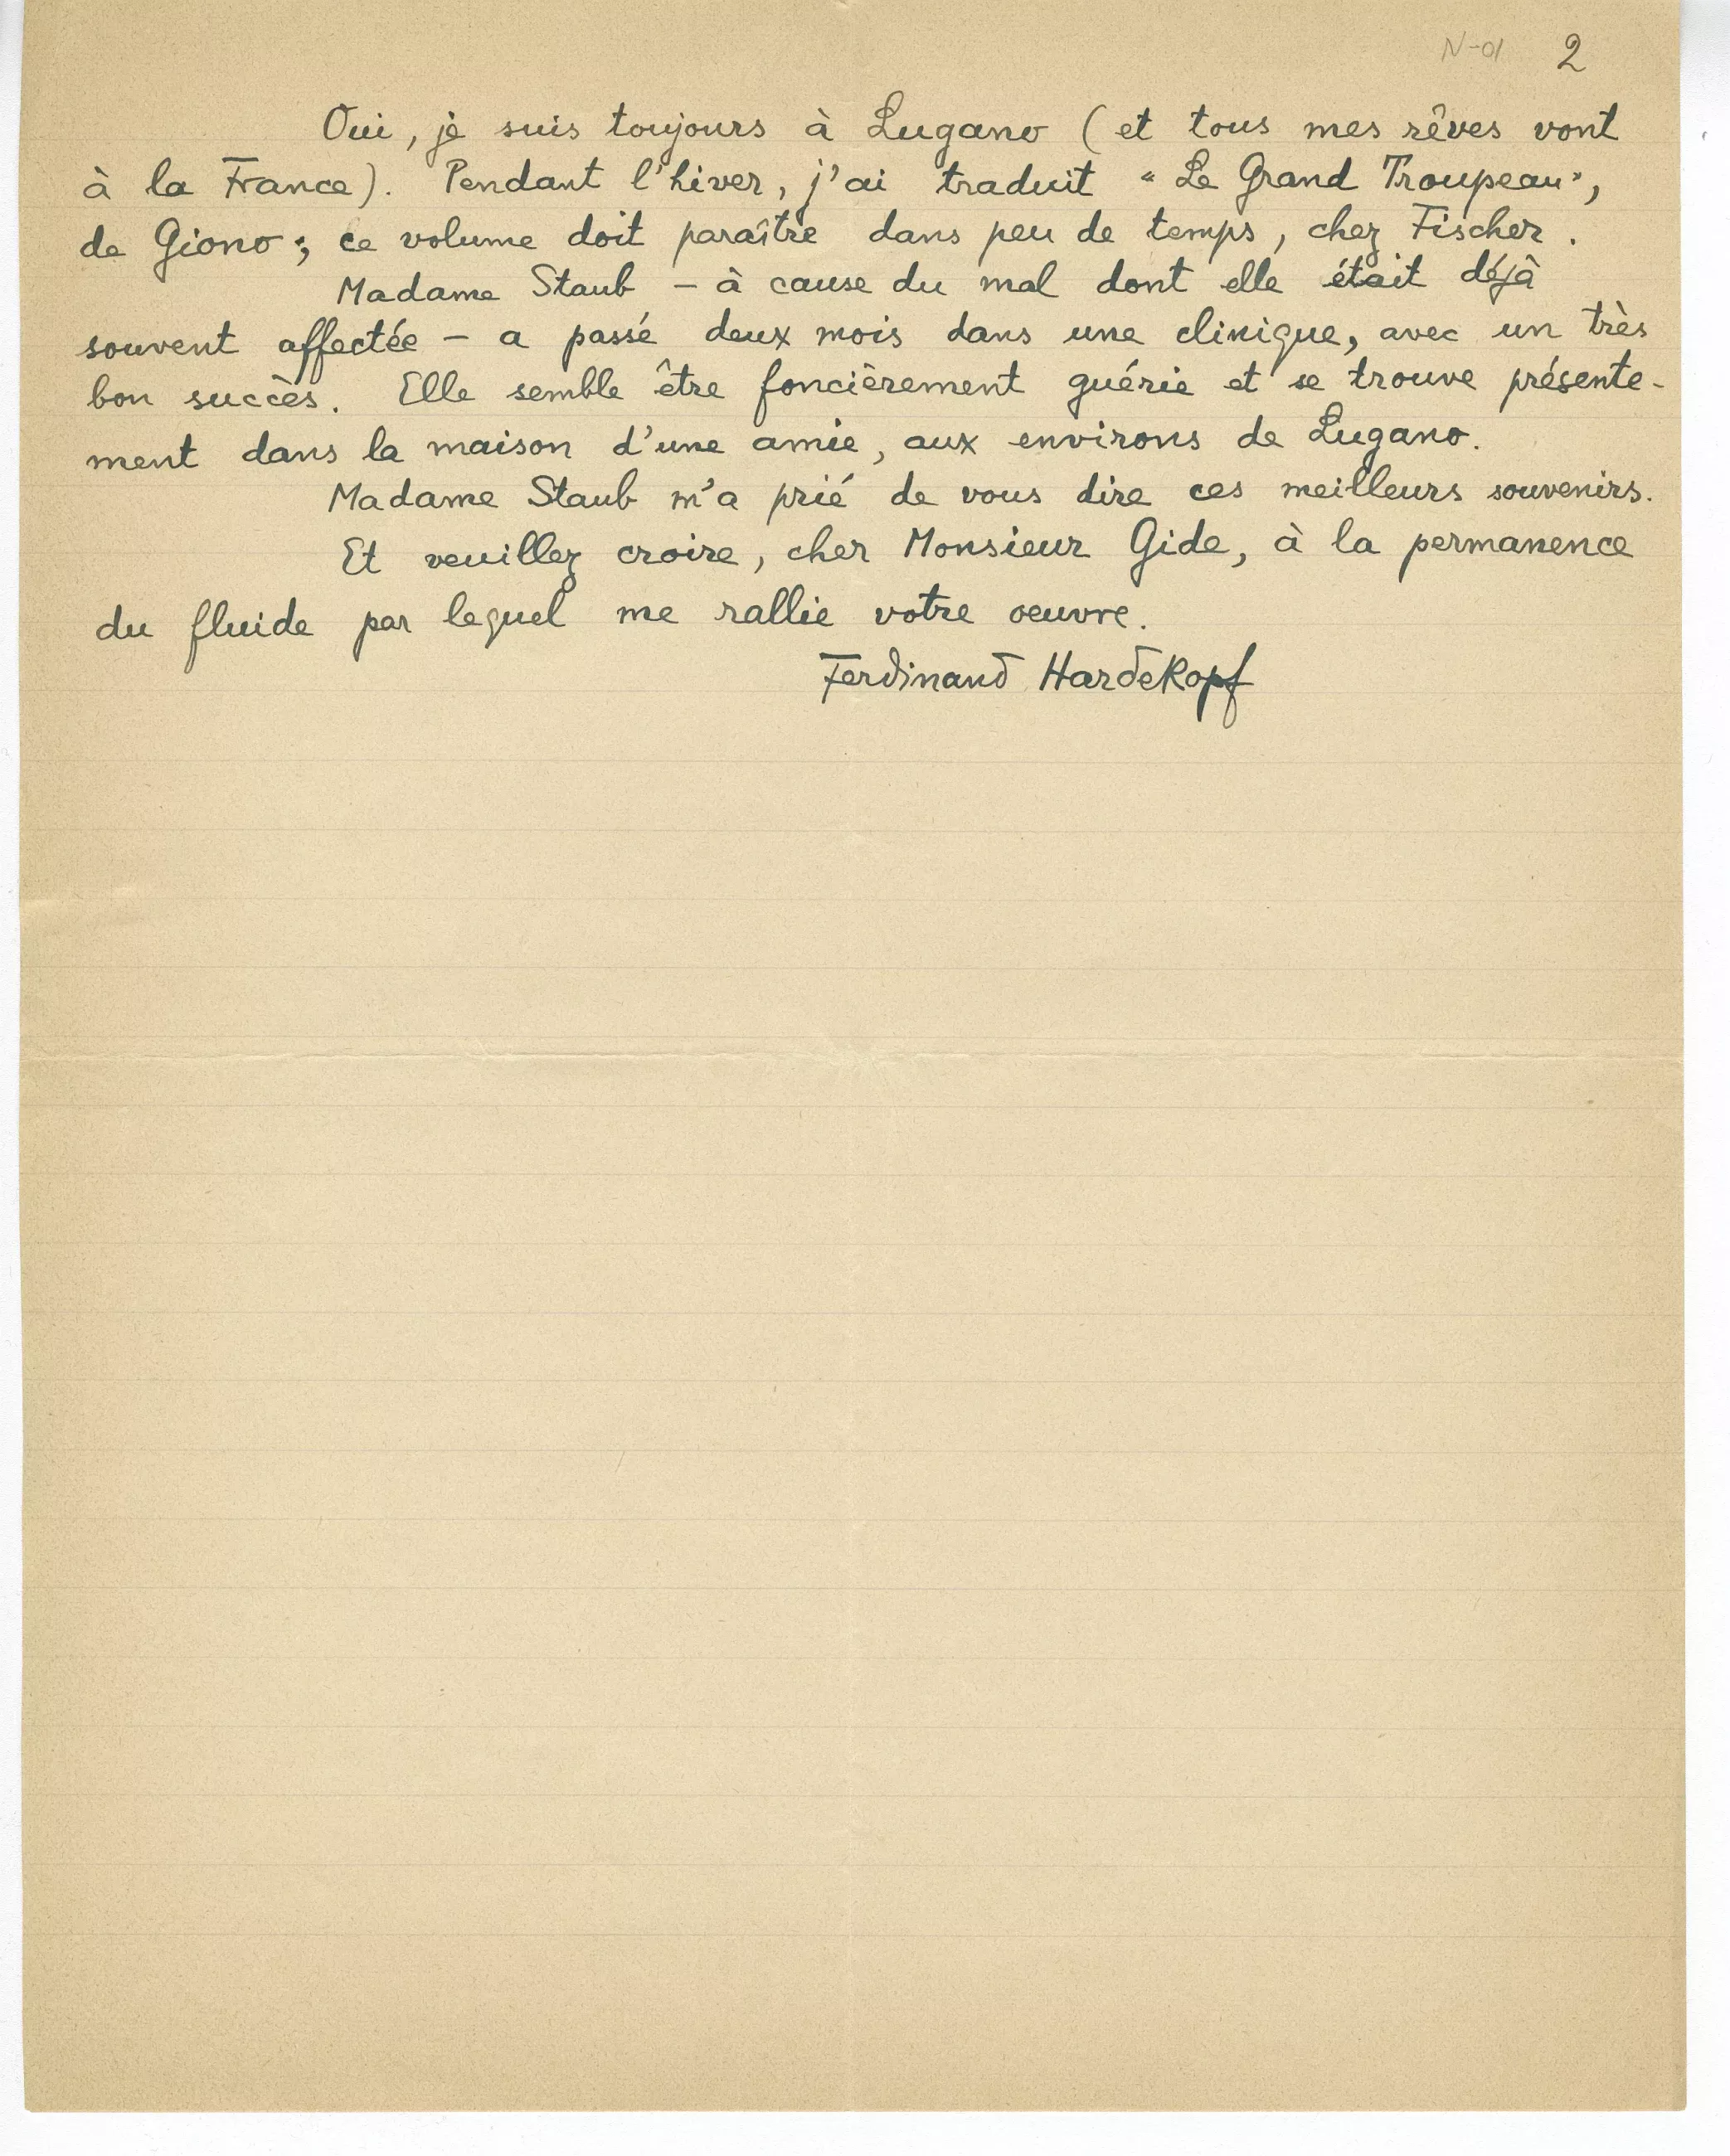 N-01 2
Oui, je suis toujours à Lugano (et tous mes rêves vont
à la France). Pendant l'hiver, j'ai traduit "Le Grand Troupeau",
de Giono ; ce volume doit paraître dans peu de temps, chez Fischer.
Madame Staub – à cause du mal dont elle était déjà
souvent affectée – a passé deux mois dans une clinique, avec un très
bon succès. Elle semble être foncièrement guérie et se trouve présente-
ment dans la maison d'une amie, aux environs de Lugano.
Madame Staub m'a prié de vous dire ces meilleurs souvenirs.
Et veuillez croire, cher Monsieur Gide, à la permanence
du fluide par lequel me rallie votre oeuvre.
Ferdinand Hardekopf